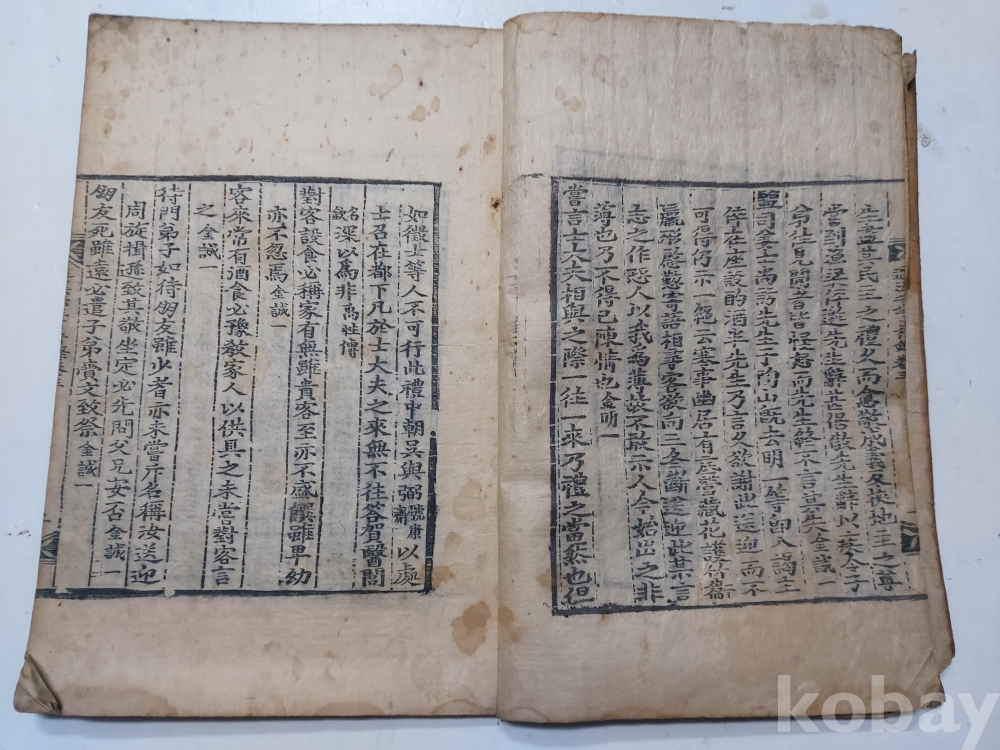 生盡其民主之禮久而愈敬地主之尊
嘗到漁梁行送先生辭甚倨傲先生辭以不參令子
弟在見聞者皆怪怒而先生終不言其失金誠一
監司姜士尚訪先生于陶山旣去明一等即入謁士
佐在座設酌酒半先生乃言久欲謝此送迎而不
可得仍示一絶云寒事幽居有底營藏花護竹攝
羸形慇懃寄語相尋客欲向三冬斷送迎此某言
志之作恐人以我為薄故不敢示人今始出之非
薄也乃不得已陳情也金明一
嘗言士大夫相與之際一往一來乃禮之當然也但
如徵士等人不可行此禮中朝吳與弼號康齋以處
士召在都下凡於士大夫之來無不往答賀醫閭
名欽深以為非禹性傳
對客設食必稱家有無雖貴客至亦不盛饌雖卑幼
亦不忽焉金誠一
客來常有酒食必豫敎家人以供具之未嘗對客言
之金誠一
待門弟子如待朋友雖少者亦未嘗斥名稱汝送迎
周旋揖遜致其敬坐定必先問父兄安否金誠一
朋友死雖遠必遣子弟賫文致祭金誠一
kobay